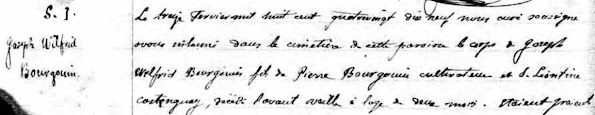 S. 1.
Joseph Wilfrid
Bourgouin.
Le treize Fevrier mil huit cent quatrevingt dix neuf nous curé soussigné
avons inhumé dans le cimetière de cette paroisse le corps de Joseph
Wilfrid Bourgouin fil de Pierre Bourgouin cultivateur et d. Léontine
Castonguay, décédé l'avant veille à l'age de deux mois. Etaient présent